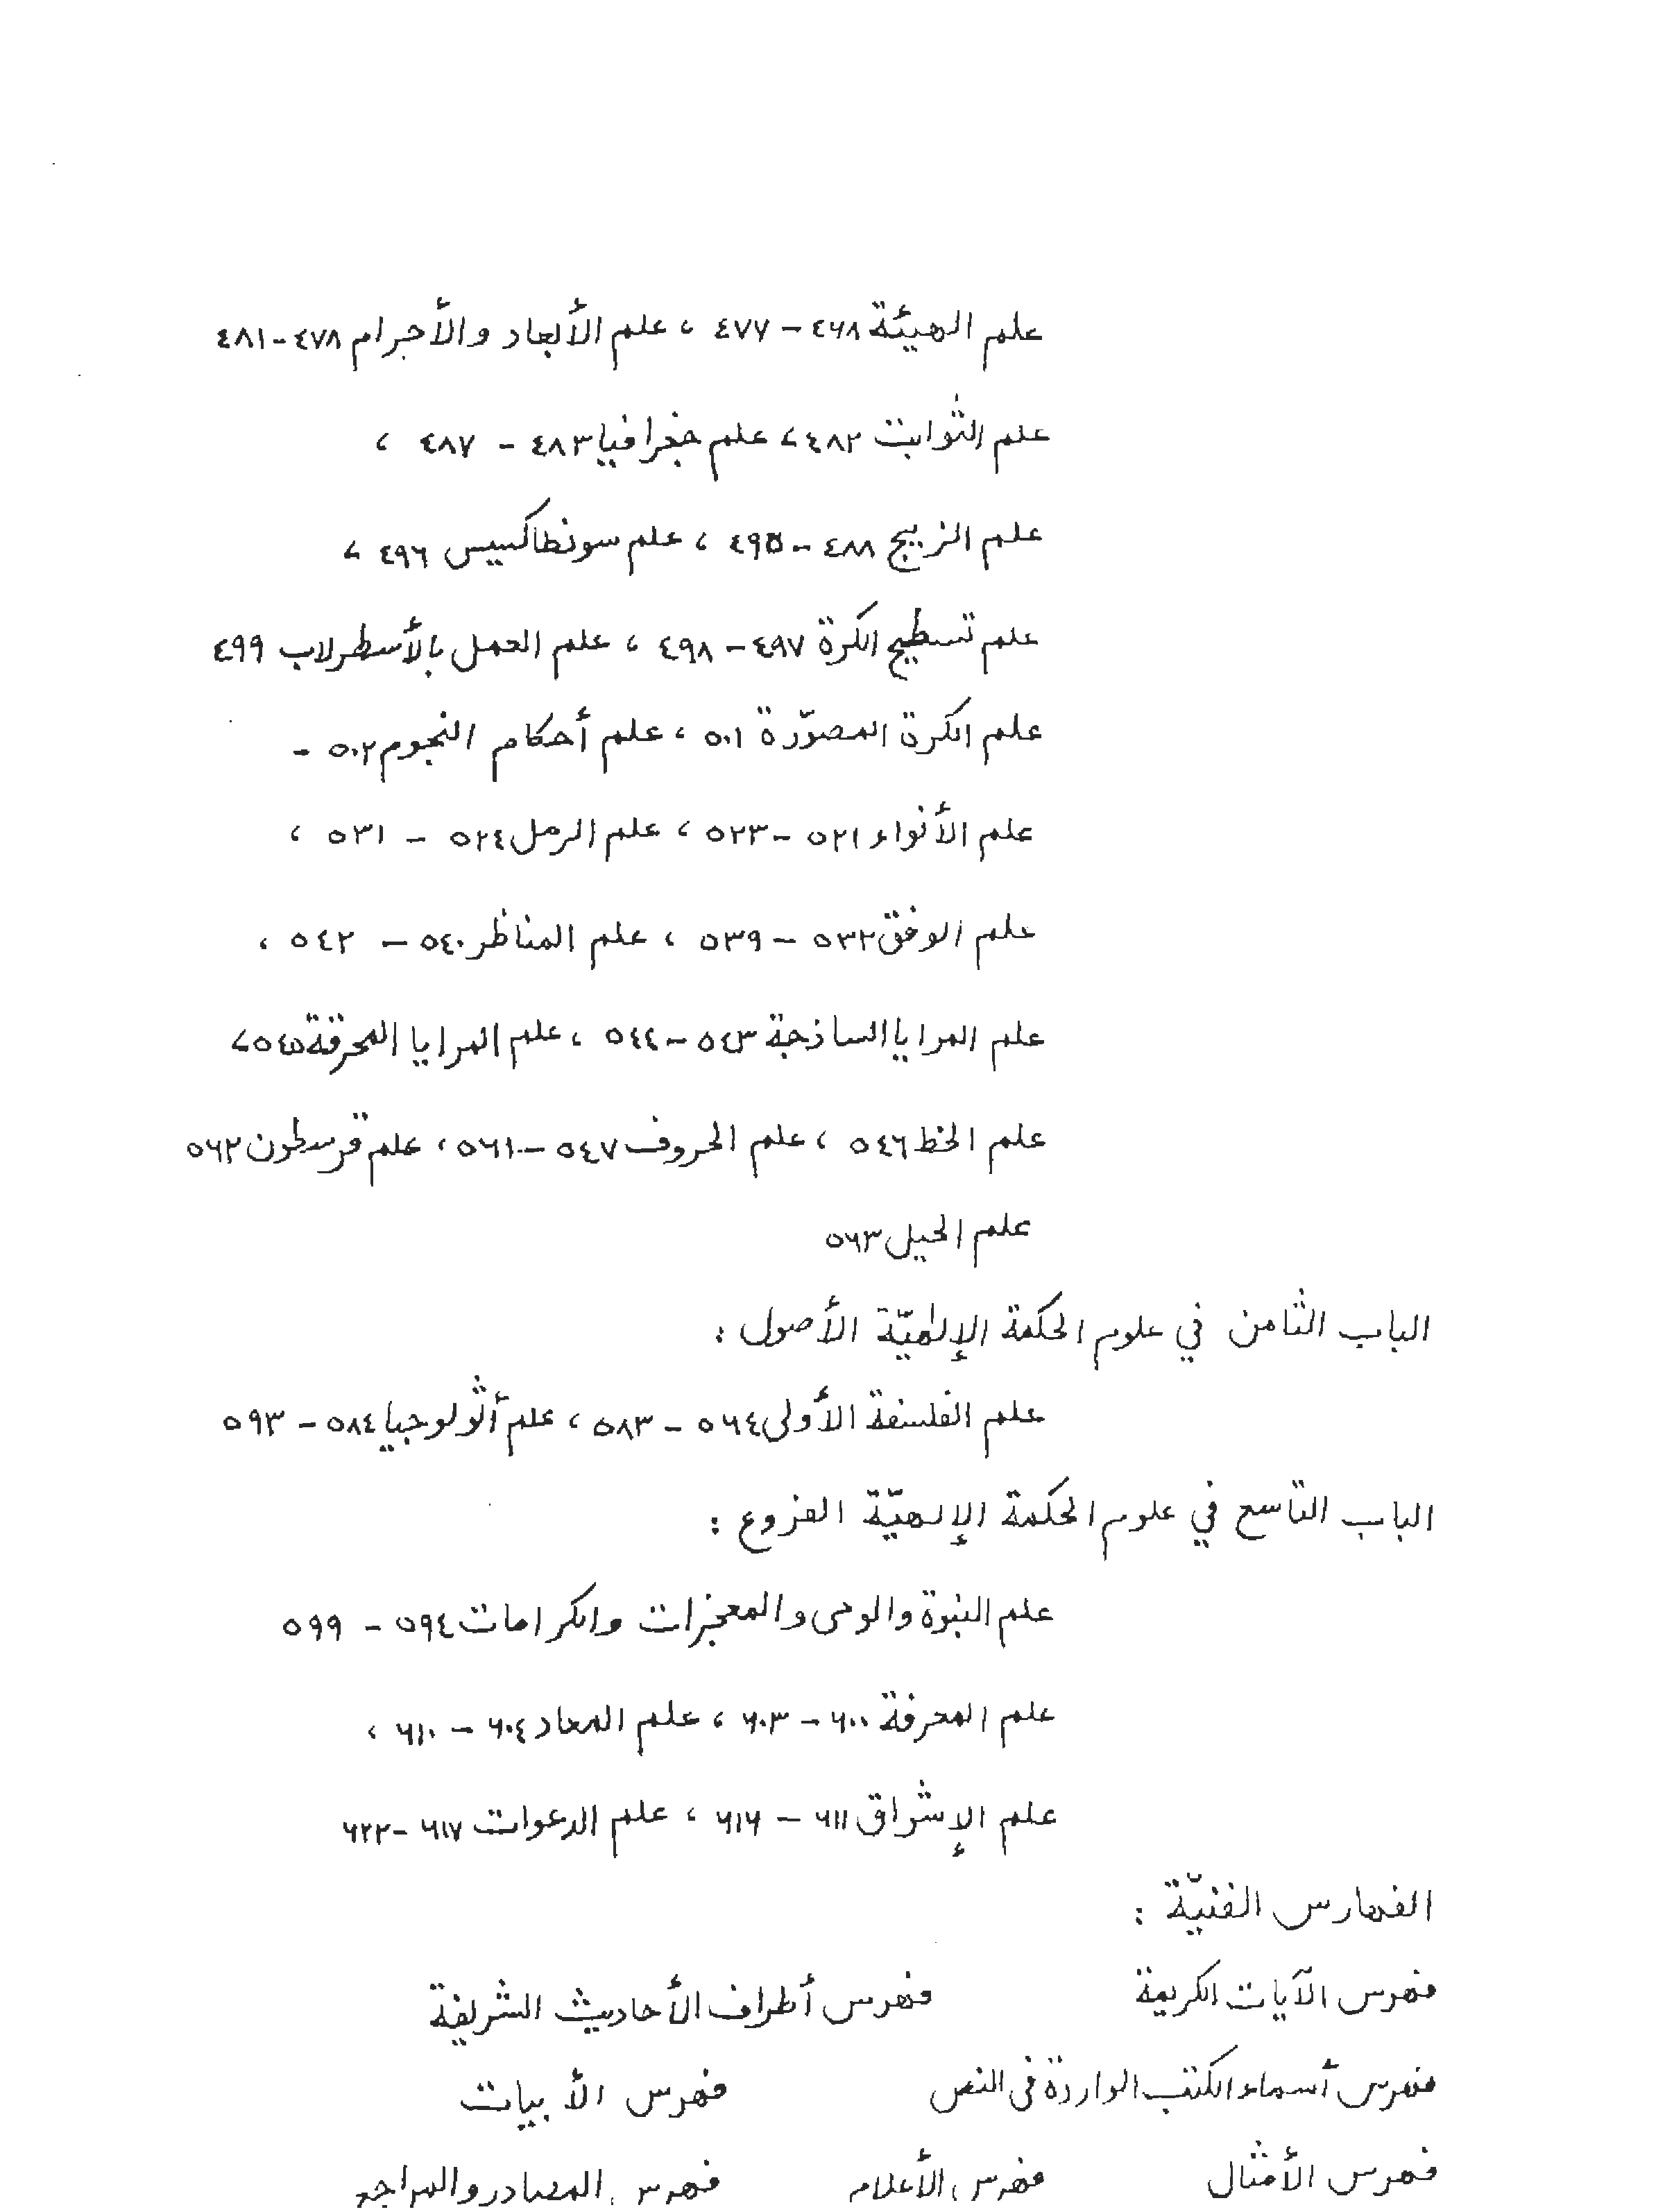 علم الهيئة ٤٦٨ - ٤٧٧ ، علم الأبعاد والأجرام ٤٧٨ - ٤٨١
علم الثوابت ٤٨٢ ، علم جغرافيا ٤٨٣ - ٤٨٧ ،
علم الزيج ٤٨٨ - ٤٩٥ ، علم سونطاكسيس ٤٩٦ ،
علم تسطيح الكرة ٤٩٧ - ٤٩٨ ، علم العمل بالأسطرلاب ٤٩٩
علم الكرة المصوّرة ٥٠١ ، علم أحكام النجوم ٥٠٢ -
علم الأنواء ٥٢١ - ٥٢٣ ، علم الرمل ٥٢٤ - ٥٣١ ،
علم الوفق ٥٣٢ - ٥٣٩ ، علم المناظر ٥٤٠ - ٥٤٢ ،
علم المرايا الساذجة ٥٤٣ - ٥٤٤ ، علم المرايا المحرقة ٥٤٥ ،
علم الخط ٥٤٦ ، علم الحروف ٥٤٧ - ٥٦١ ، علم قرسطون ٥٦٢
علم الحيل ٥٦٣
الباب الثامن في علوم الحكمة الإلهيّة الأصول :
علم الفلسفة الأولى ٥٦٤ - ٥٨٣ ، علم أثولوجيا ٥٨٤ - ٥٩٣
الباب التاسع في علوم الحكمة الإلهيّة الفروع :
علم النبوة والوحى والمعجزات والكرامات ٥٩٤ - ٥٩٩
علم المعرفة ٦٠٠ - ٦٠٣ ، علم المعاد ٦٠٤ - ٦١٠ ،
علم الإشراق ٦١١ - ٦١٦ ، علم الدعوات ٦١٧ - ٦٢٢
الفهارس الفنيّة :
فهرس الآيات الكريمة فهرس أطراف الأحاديث الشريفة
فهرس أسماء الكتب الواردة فى النص فهرس الأبيات
فهرس الأمثال فهرس الأعلام فهرس المصادر والمراجع